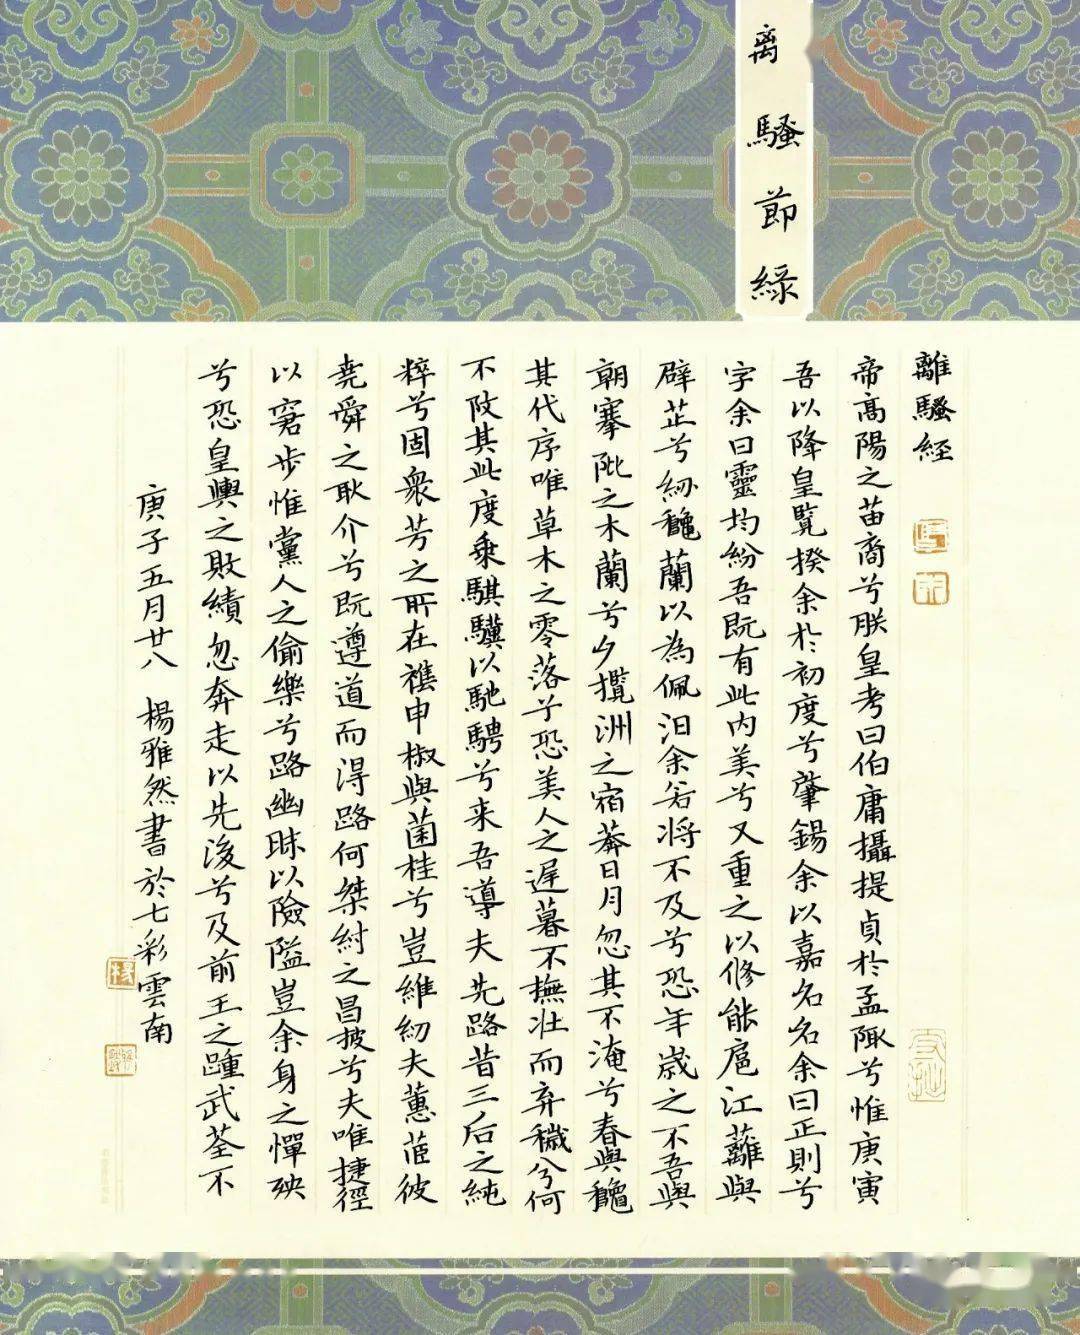 离騷節緑
離騷經
帝高陽之苗裔兮朕皇考曰伯庸攝提貞於孟陬兮惟庚寅
吾以降皇覽揆余於初度兮肇錫余以嘉名名余曰正則兮
字余曰靈均紛吾既有此内美兮又重之以修能扈江蘺與
辟芷兮紉龝蘭以為佩汩余若将不及兮恐年歲之不吾與
朝搴阰之木蘭兮夕攬洲之宿莽日月忽其不淹兮春與龝
其代序唯草木之零落兮恐美人之遲暮不撫壯而弃穢兮何
不改其此度乗騏驥以馳騁兮来吾導夫先路昔三后之純
粹兮固衆芳之所在襍申椒與菌桂兮豈維紉夫蕙茝彼
堯舜之耿介兮既遵道而得路何桀紂之昌披兮夫唯捷徑
以窘步惟黨人之偷樂兮路幽昧以險隘豈余身之憚殃
兮恐皇輿之敗績忽奔走以先後兮及前王之踵武荃不
庚子五月廿八 楊雅然書於七彩雲南
楊